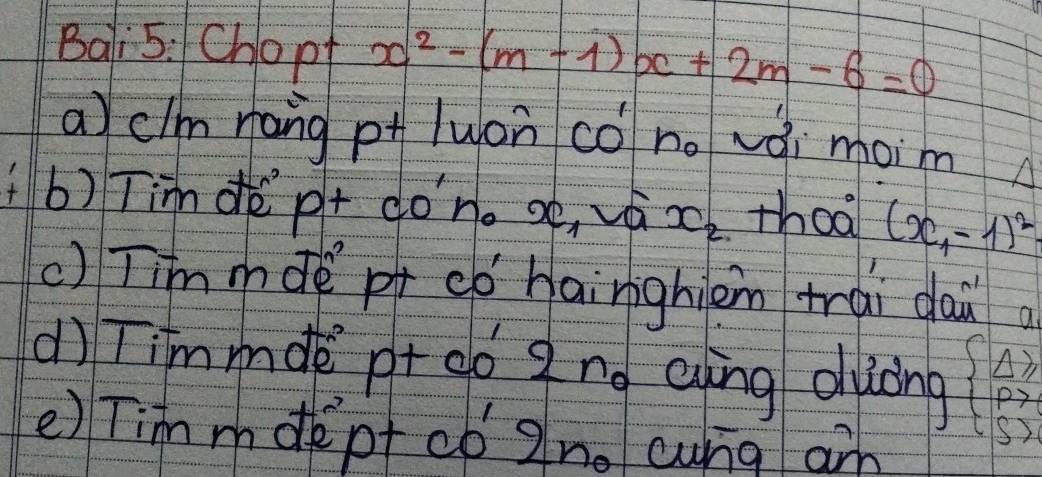 Bài 5: Cho pt x² - (m - 1)x + 2m - 6 = 0
a) c/m rằng pt luôn có n₀ với mọi m Δ
b) Tìm để pt có n₀ x₁ và x₂ thoả (x₁ - 1)²
c) Tìm m để pt có hai nghiệm trái dấu a
d) Tìm m để pt có 2 n₀ cùng dương { Δ ≥
P >
S >
e) Tìm m để pt có 2 n₀ cùng âm